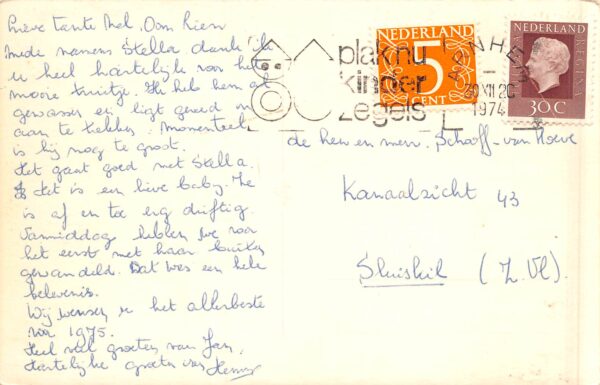 Lieve tante Mel. Oom Rien
Mede namens Stella dank ik
u heel hartelijk voor het
mooie truitje. Ik heb hem al
gewassen en ligt gereed om
aan te hebben. Momenteel
is hij nog te groot.
Het gaat goed met Stella.
Het is een lieve baby. Ze
is af en toe erg driftig.
Vanmiddag hebben we voor
het eerst met haar buiten
gewandeld. Dat was een hele
belevenis.
Wij wensen u het allerbeste
voor 1975.
Heel veel groeten van Jan,
Hartelijke groeten van Henny
plak nu
kinder
zegels
NEDERLAND
5
CENT
ARNHEM
20 XII 20
1974
NEDERLAND
JULIANA REGINA
30 C
de heer en mevr. Schaff-van Hoeve
Kanaalzicht 43
Sluiskil (Z. Vl).